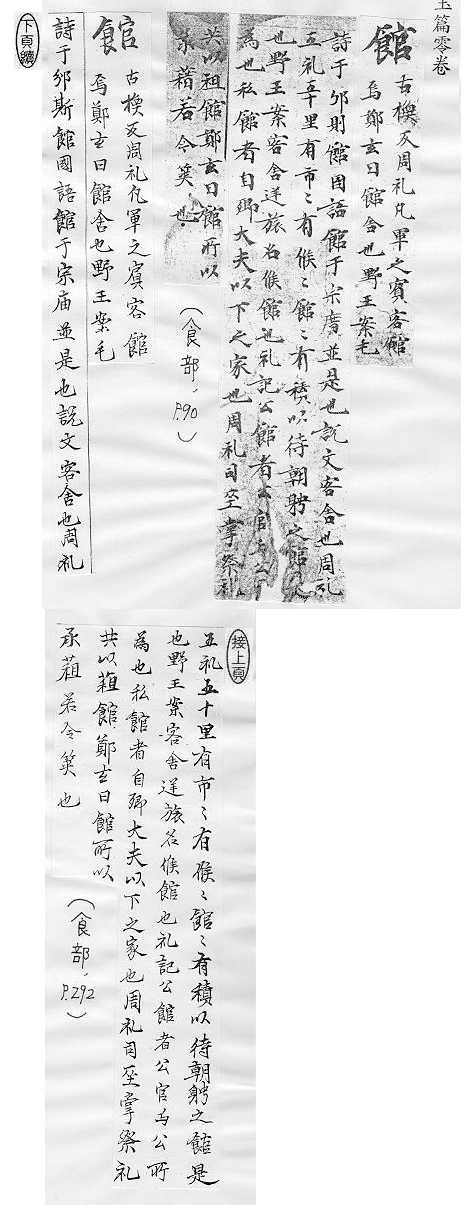 玉篇零卷
館
古換反周礼凡軍之賓客館
焉鄭玄曰館舍也野王案毛
詩于邠斯館国語館于宗廟並是也說文客舍也周礼
五礼五十里有市〻有候〻館〻有積以待朝聘之館是
也野王案客舍逆旅名候館也礼記公館者公官与公所
為也私館者自卿大夫以下之家也周礼司巫掌祭礼
共以租館鄭玄曰館所以
承藉若今筐也
(食部,P.90)
館
古換反周礼凡軍之賓客館
焉鄭玄曰館舍也野王案毛
詩于邠斯館國語館于宗庙並是也說文客舍也周礼
下頁續
接上頁
五礼五十里有市〻有候〻館〻有積以待朝聘之館是
也野王案客舍逆旅名候館也礼記公館者公官与公所
為也私館者自卿大夫以下之家也周礼司巫掌祭礼
共以蒩館鄭玄曰館所以
承蒩若今筐也
(食部,P.292)